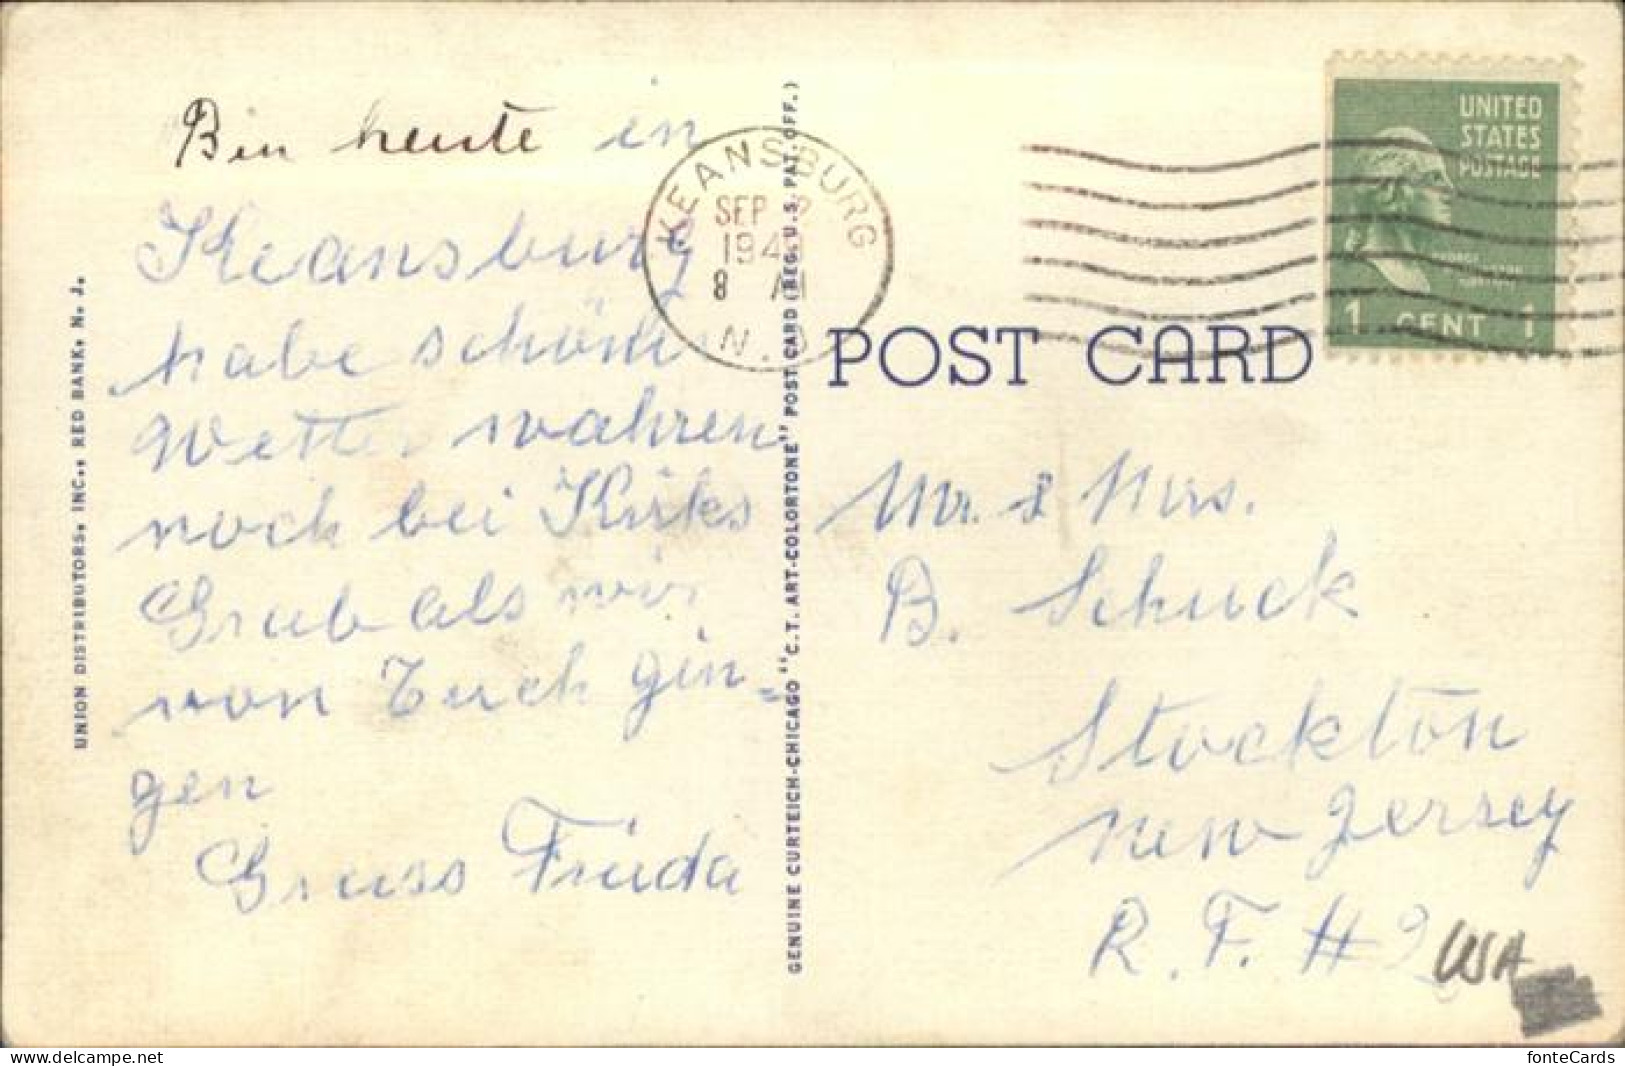 Bin heute in
Keansburg
habe schönes
Wetter wahren
noch bei Kirks
Grab als wir
von Euch gin=
gen
Gruss Frieda
UNION DISTRIBUTORS, INC., RED BANK, N. J.
GENUINE CURTEICH-CHICAGO "C.T. ART-COLORTONE" POST CARD (REG. U.S. PAT. OFF.)
KEANSBURG
SEP
194
8 AM
N.J.
UNITED
STATES
POSTAGE
1 CENT 1
POST CARD
Mr. & Mrs.
B. Schuck
Stockton
New Jersey
R. F. # 2
USA
fonteCards
Back to bidding at hdlcards.com